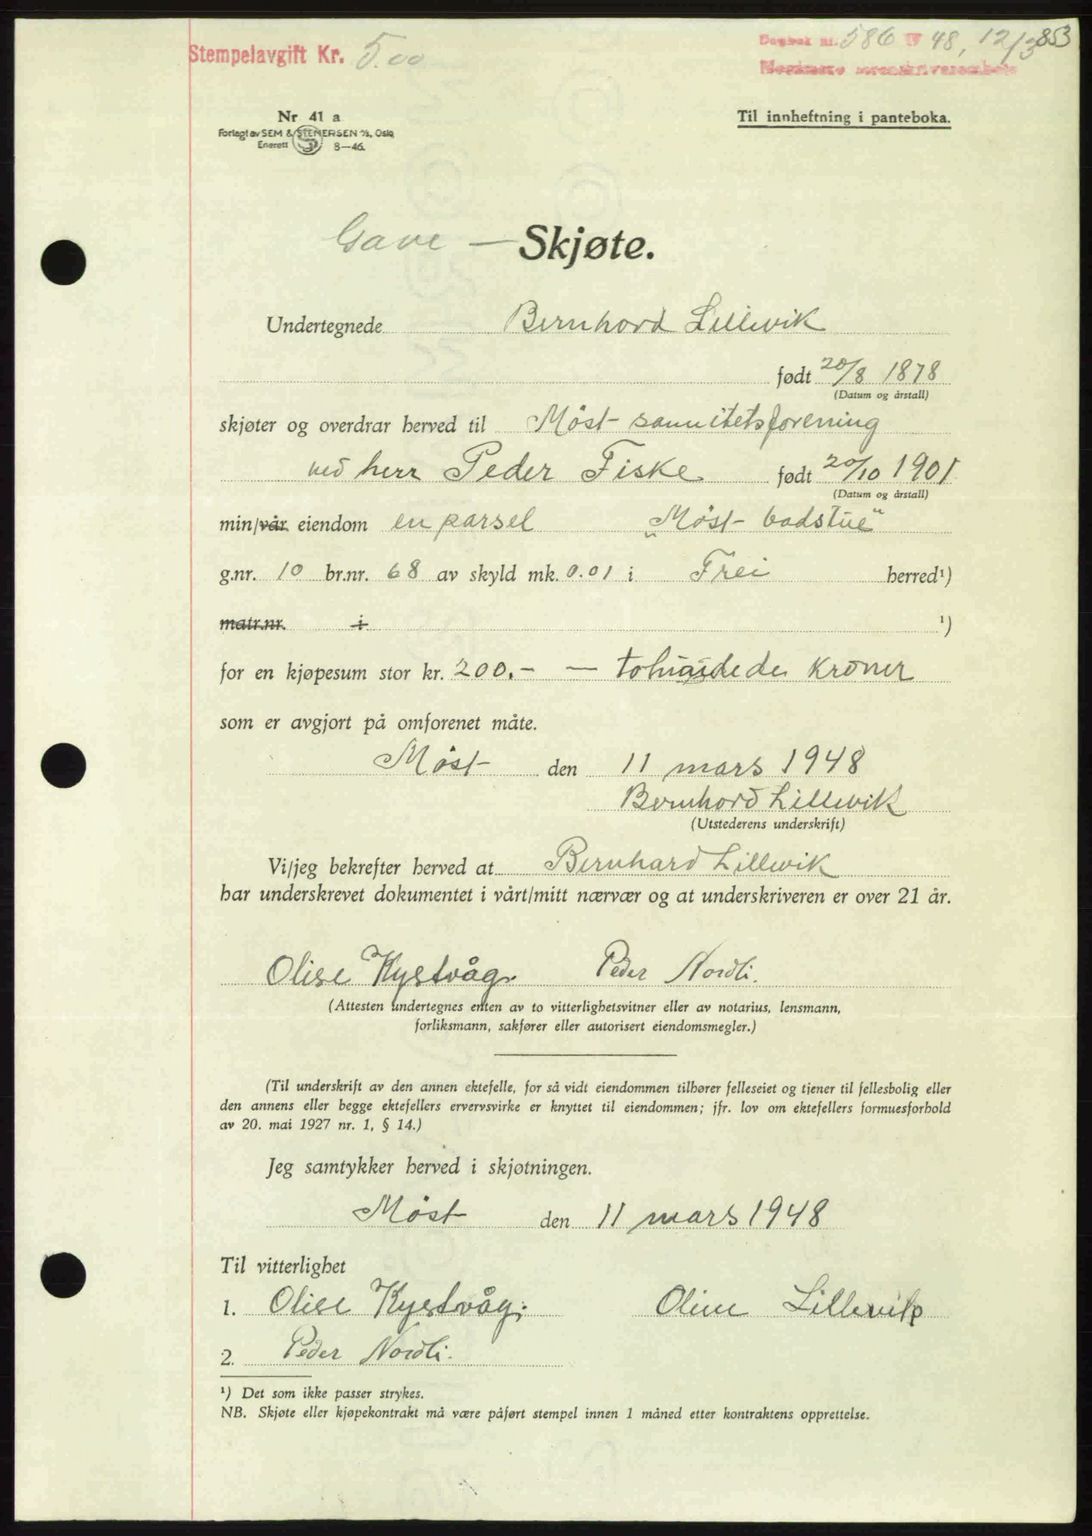 Stempelavgift Kr. 5.00
Dagbok nr. 586 19 48, 12/3 853
Nordmøre sorenskriverembete
Nr 41 a
Forlagt av SEM & STENERSEN A/S, Oslo
Enerett 8—46.
Til innheftning i panteboka.
Gave — Skjøte.
Undertegnede Bernhard Lillevik
født 20/8 1878
(Datum og årstall)
skjøter og overdrar herved til Møst sanitetsforening
ved herr Peder Fiske født 20/10 1901
(Datum og årstall)
min/vår eiendom en parsel „Møst badstue“
g.nr. 10 br.nr. 68 av skyld mk. 0.01 i Frei herred¹)
matr.nr. i ¹)
for en kjøpesum stor kr. 200.- — tohundrede kroner
som er avgjort på omforenet måte.
Møst den 11 mars 1948
Bernhard Lillevik
(Utstederens underskrift)
Vi/jeg bekrefter herved at Bernhard Lillevik
har underskrevet dokumentet i vårt/mitt nærvær og at underskriveren er over 21 år.
Olise Kystvåg. Peder Nordli.
(Attesten undertegnes enten av to vitterlighetsvitner eller av notarius, lensmann,
forliksmann, sakfører eller autorisert eiendomsmegler.)
(Til underskrift av den annen ektefelle, for så vidt eiendommen tilhører felleseiet og tjener til fellesbolig eller
den annens eller begge ektefellers ervervsvirke er knyttet til eiendommen; jfr. lov om ektefellers formuesforhold
av 20. mai 1927 nr. 1, § 14.)
Jeg samtykker herved i skjøtningen.
Møst den 11 mars 1948
Til vitterlighet
1. Olise Kystvåg. Oline Lillevik
2. Peder Nordli.
¹) Det som ikke passer strykes.
NB. Skjøte eller kjøpekontrakt må være påført stempel innen 1 måned etter kontraktens opprettelse.